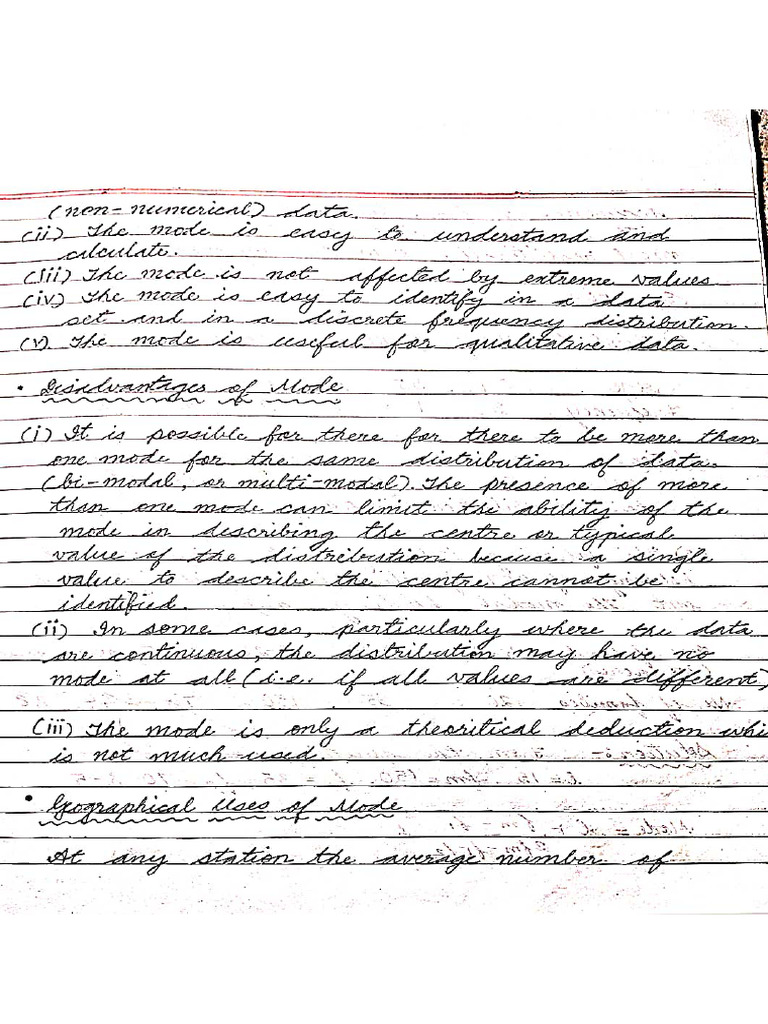 (non-numerical) data.
(ii) The mode is easy to understand and
calculate.
(iii) The mode is not affected by extreme values
(iv) The mode is easy to identify in a data
set and in a discrete frequency distribution.
(v) The mode is useful for qualitative data.
• Disadvantages of Mode
(i) It is possible for there for there to be more than
one mode for the same distribution of data.
(bi-modal, or multi-modal). The presence of more
than one mode can limit the ability of the
mode in describing the centre or typical
value of the distribution because a single
value to describe the centre cannot be
identified.
(ii) In some cases, particularly where the data
are continuous, the distribution may have no
mode at all (i.e. if all values are different)
(iii) The mode is only a theoritical deduction whi
is not much used.
• Geographical Uses of Mode
At any station the average number of